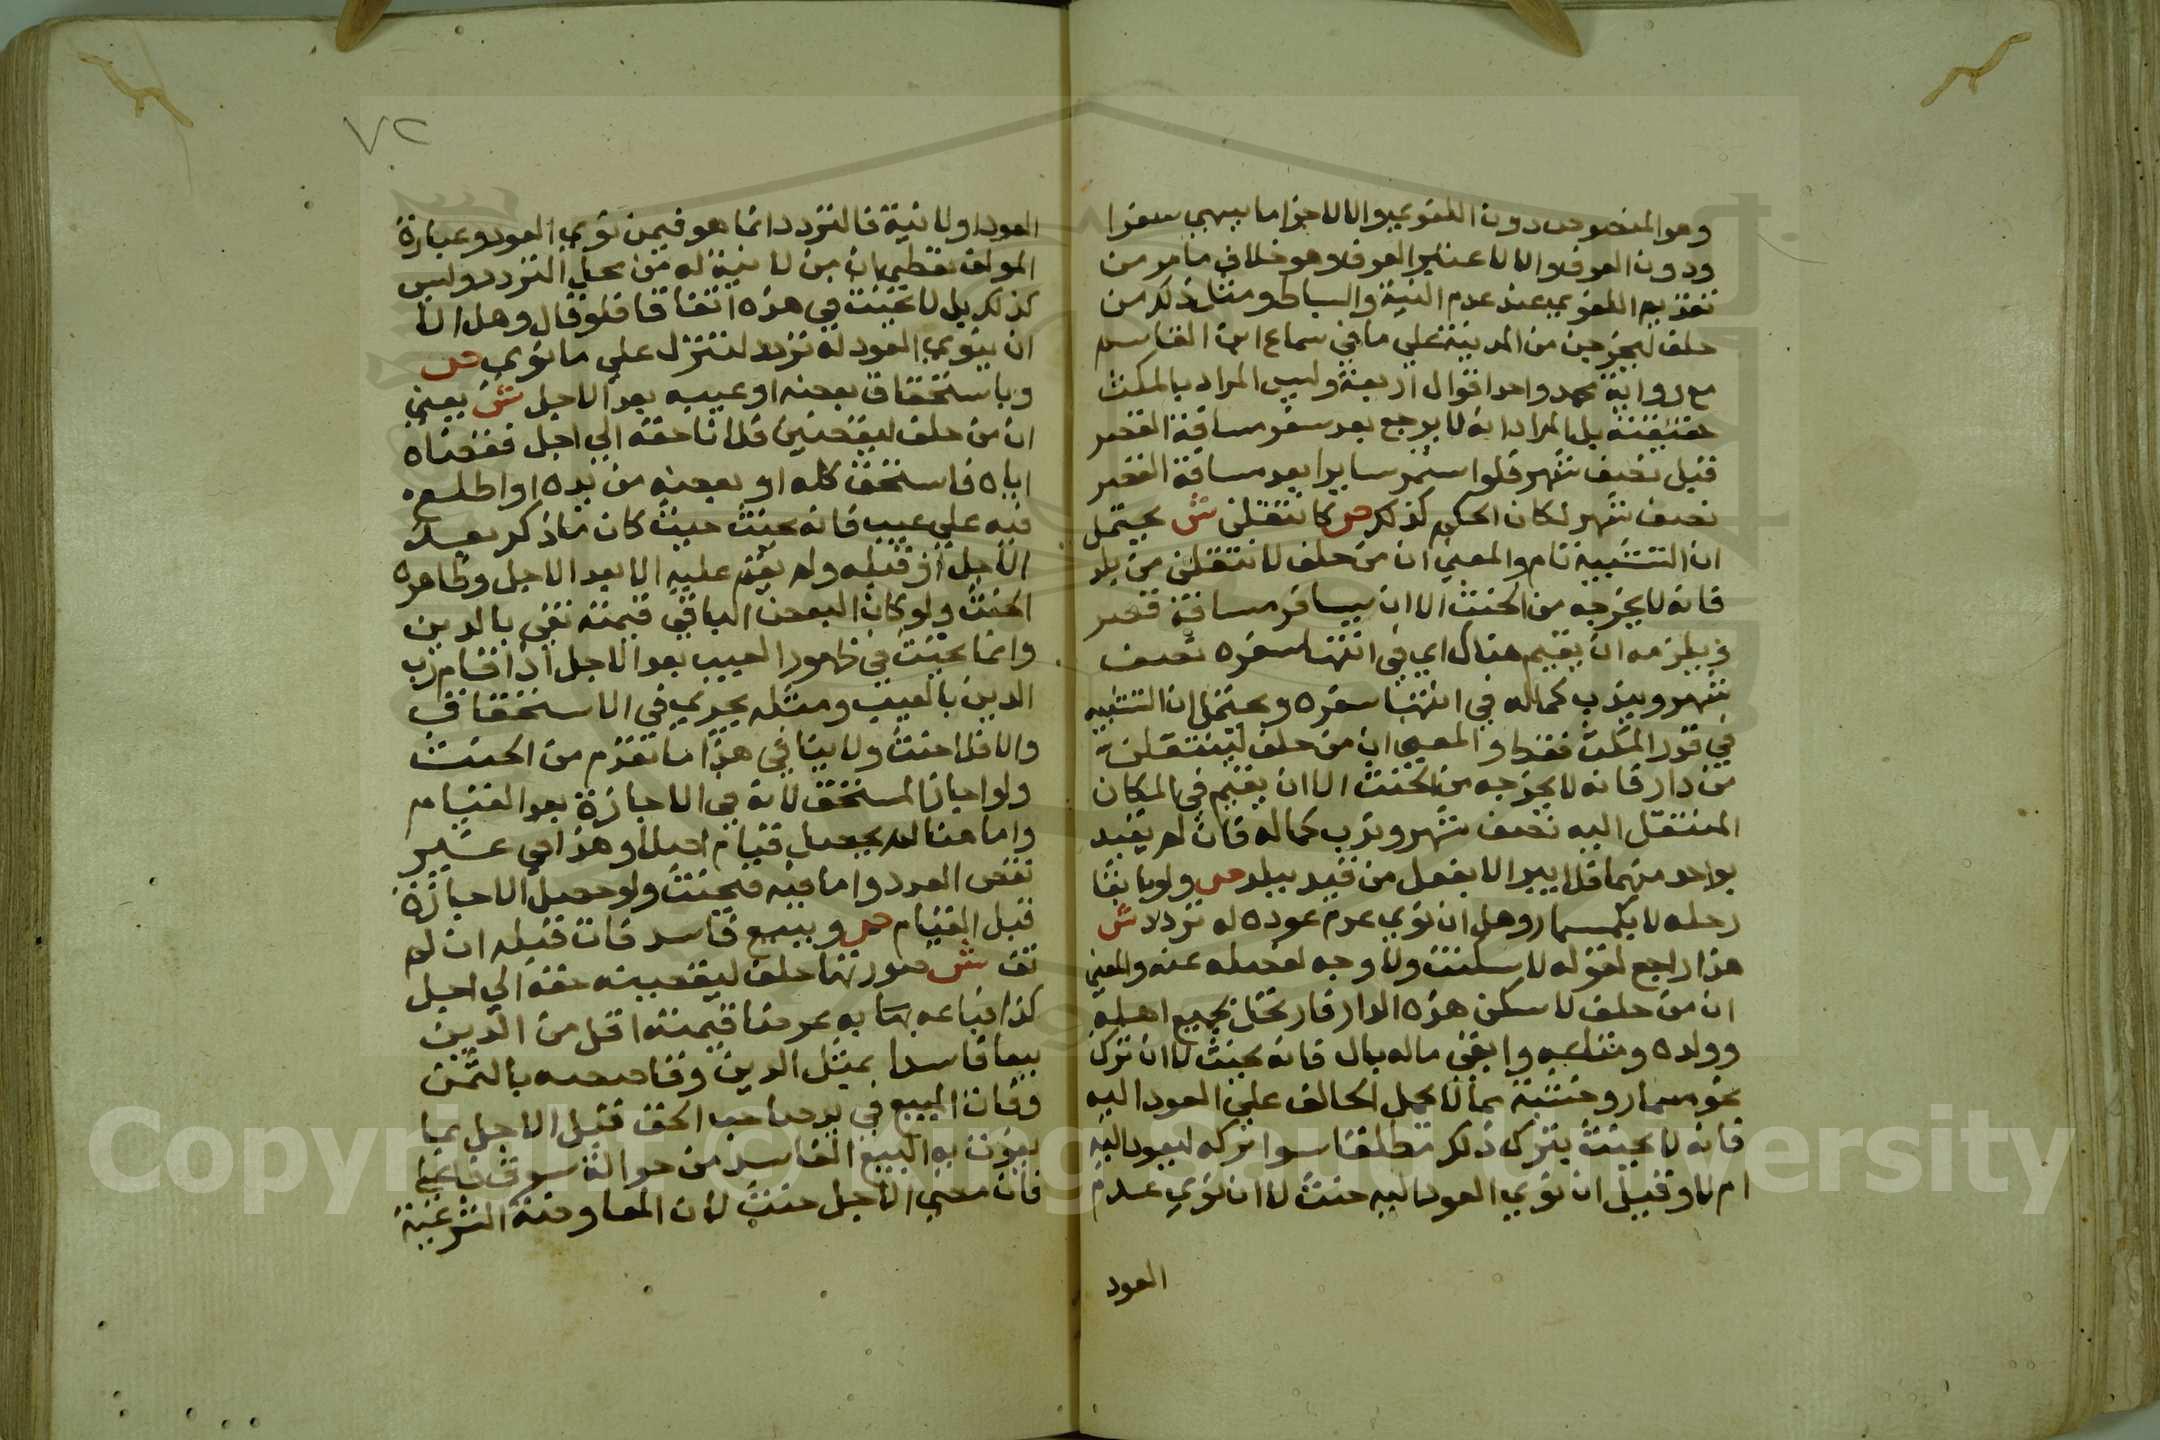 وهو المنصوص دون اللغوي والا لاجزا ما يسمي سفرا
ودون العرف والا لاعتبر العرف وهو خلاف ما مر من
تقديم اللغوي عند عدم النية والبساط ومثل ذلك من
حلف ليخرجن من المدينة علي ما في سماع ابن القاسم
مع رواية محمد واحد اقوال اربعة وليس المراد بالمكث
حقيقته بل المراد انه لا يرجع بعد سفر مسافة القصر
قبل نصف شهر فلو استمر سايرا بعد مسافة القصر
نصف شهر لكان الحكم كذلك ص كانتقلن ش يحتمل
ان التشبيه تام والمعني ان من حلف لانتقلن من بلد
فانه لا يخرجه من الحنث الا ان يسافر مسافة قصر
ويلزمه ان يقيم هناك اي في انتها سفره نصف
شهر ويندب كماله في انتها سفره ويحتمل ان التشبيه
في قدر المكث فقط والمعني ان من حلف لينتقلن
من دار فانه لا يخرجه من الحنث الا ان يقيم في المكان
المنتقل اليه نصف شهر وندب كماله فان لم يقيد
بواحد منهما فلا يبر الا بفعل من قيد ببلد ص ولو بابقا
رحله لا بكمسمار وهل ان نوي عدم عوده له تردد ش
هذا راجع لقوله لا سكنت ولا وجه لفصله عنه والمعني
ان من حلف لا سكن هذه الدار فارتحل بجميع اهله
وولده ومتاعه وابقي ماله بال فانه يحنث لا ان ترك
نحو مسمار وخشبة مما لا يحمل الحالف علي العود اليه
فانه لا يحنث بترك ذلك مطلقا سوا تركه ليعود اليه
ام لا وقيل ان نوي العود اليه حنث لا ان نوي عدم
العود
٧٢
العود او لا نية فالتردد انما هو فيمن نوي العود وعبارة
المولف تعطي ان من لا نية له من محل التردد وليس
كذلك بل لا يحنث في هذه اتفاقا فلو قال وهل الا
ان ينوي العود له تردد لتنزل علي ما نوي ص
وباستحقاق بعضه او عيبه بعد الاجل ش يعني
ان من حلف ليقضين فلانا حقه الي اجل فقضاه
اياه فاستحق كله او بعضه من يده او اطلع
فيه علي عيب فانه يحنث حيث كان ما ذكر بعد
الاجل او قبله ولم يقم عليه الا بعد الاجل وظاهره
الحنث ولو كان البعض الباقي قيمته تفي بالدين
وانما يحنث في ظهور العيب بعد الاجل اذا قام رب
الدين بالعيب ومثله يجري في الاستحقاق
والا فلا حنث ولا ينافي هذا ما تقدم من الحنث
ولو اجاز المستحق لانه في الاجازة بعد القيام
واما هنا لم يحصل قيام اصلا وهذا في غير
نقص العدد واما فيه فيحنث ولو حصل الاجازة
قبل القيام ص وببيع فاسد فات قبله ان لم
تف ش صورتها حلف ليقضينه حقه الي اجل
كذا فباعه بها به عرضا قيمته اقل من الدين
بيعا فاسدا بمثل الدين وقاصصه بالثمن
وفات المبيع في يد صاحب الحق قبل الاجل بما
يفوت به البيع الفاسد من حوالة سوق فاعلي
فان مضي الاجل حنث لان المعاوضة الشرعية
Copyright © King Saud University